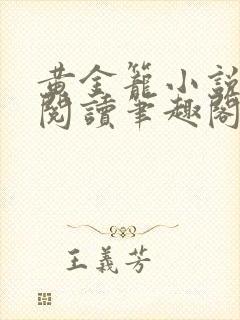 黃金籠小説
閱讀筆趣閣
王義芳